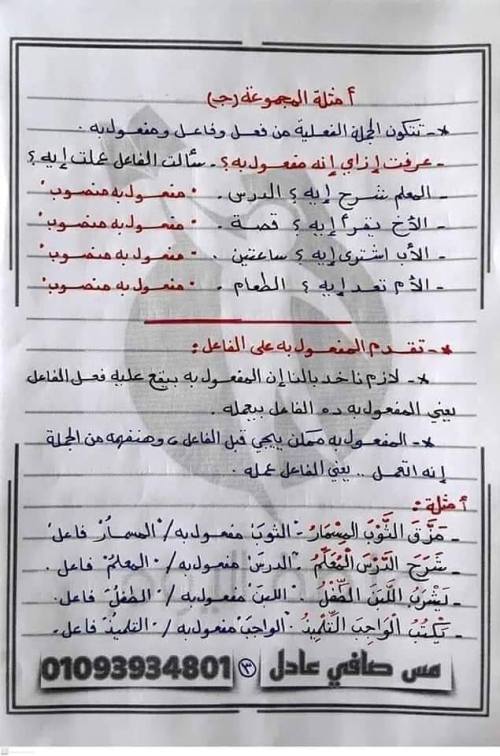 أمثلة المجموعة (جـ)
*- تتكون الجملة الفعلية من فعل وفاعل ومفعول به.
- عرفت إزاي إنه مفعول به؟. سألت الفاعل عملت إيه؟
- المعلم شرح إيه؟ الدرس. "مفعول به منصوب"
- الأخ يقرأ إيه؟ قصة. "مفعول به منصوب"
- الأب اشترى إيه؟ ساعتين. "مفعول به منصوب"
- الأم تعد إيه؟ الطعام. "مفعول به منصوب"
*- تقدم المفعول به على الفاعل:
*- لازم ناخد بالنا إن المفعول به بيقع عليه فعل الفاعل
يعني المفعول به ده الفاعل بيعمله.
*- المفعول به ممكن ييجي قبل الفاعل، وهنفهمه من الجملة
إنه اتعمل .. يعني الفاعل عمله.
أمثلة:
- مَزَّقَ الثَّوْبَ المِسْمَارُ - "الثوبَ" مفعول به / "المسمارُ" فاعل.
- شَرَحَ الدَّرْسَ الْمُعَلِّمُ. "الدرسَ" مفعول به / "المعلمُ" فاعل.
- يَشْرَبُ اللَّبَنَ الطِّفْلُ. "اللبنَ" مفعول به / "الطفلُ" فاعل.
- يَكْتُبُ الْوَاجِبَ التِّلْمِيذُ. "الواجبَ" مفعول به / "التلميذُ" فاعل.
مس صافي عادل ٣ 01093934801